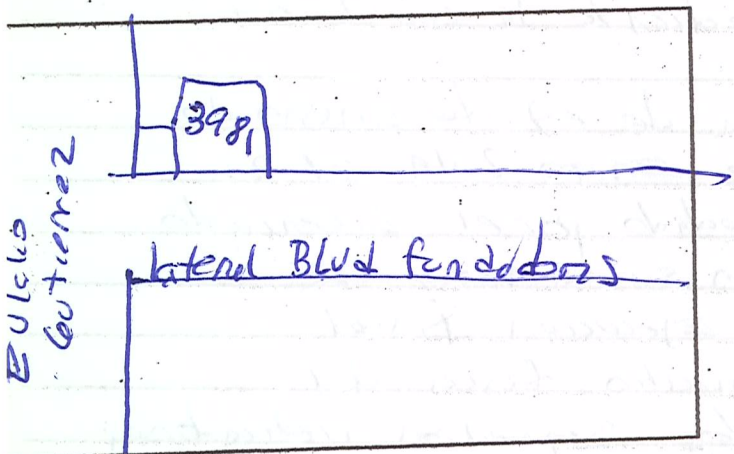 3981
lateral BLVd fundadores
Eulalio
Gutierrez